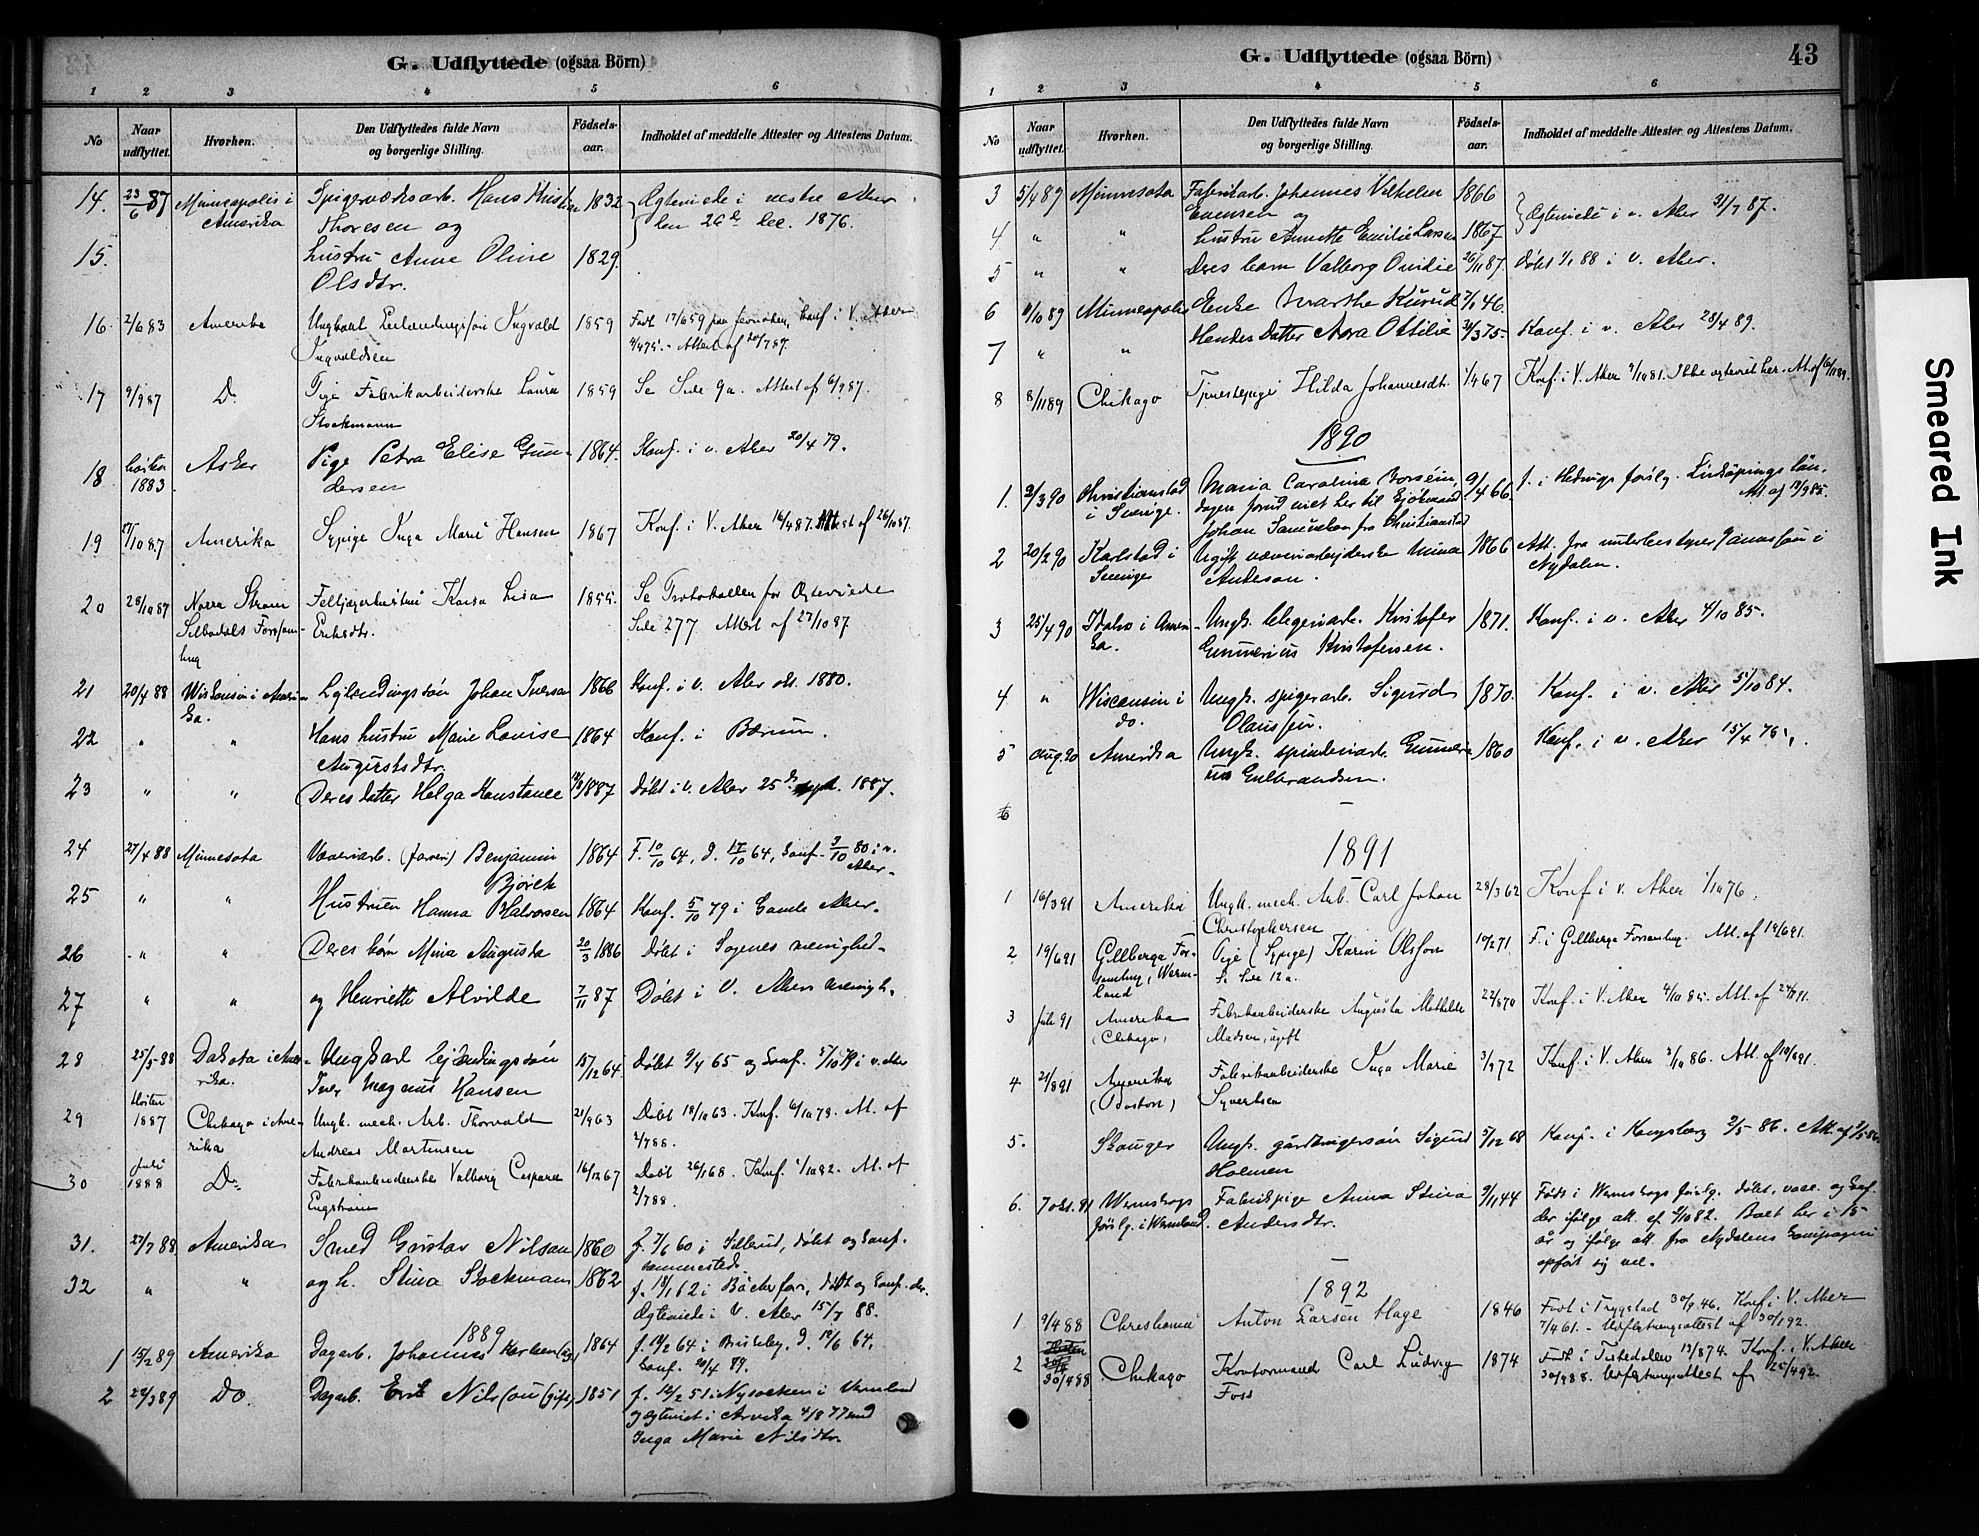 G. Udflyttede (ogsaa Börn)
1 2 3 4 5 6
No
Naar udflyttet.
Hvorhen.
Den Udflyttedes fulde Navn og borgerlige Stilling.
Fødsels-aar.
Indholdet af meddelte Attester og Attestens Datum.
14. 23/6 87 Minneapolis i Spigerværksarb. Hans Kristian 1832 Ægteviede i vestre Aker
Amerika Thoresen og den 26de dec. 1876.
15. hustru Anne Oline 1829.
Olsdtr.
16. 2/6 83 Amerika Ungkarl Leilændingssøn Ingvald 1859 Født 17/6 59 Konf. i V. Aker
Ingvaldsen Attest af 20/7 87.
17 9/9 87 Do. Pige Fabrikarbeiderske Laura 1859 Se Side 9a. Attest af 6/9 87.
Stockmann
18 høsten Asker Pige Petra Elise Gun- 1864. Konf. i v. Aker 20/4 79.
1883 dersen
19 Amerika Sypige Inga Marie Hansen 1867 Konf. i V. Aker 16/4 87. Attest af 26/10 87.
20 28/10 87 Norra Kaisa Lisa 1855. Se Protokollen for Ægteviede
Silbodals Forsam- Eriksdtr. Side 277 Attest af 27/10 87.
ling
21 20/4 88 Wiskonsin i Ameri- Lejlændingssøn Johan Iversen 1866 Konf. i V. Aker okt. 1880.
ka.
22 " " Hans hustru Marie Lovise 1864 Konf. i Bærum.
Augustsdtr.
23 " " Deres datter Helga Konstance 1887 Døbt i v. Aker 25de sept. 1887.
24 27/4 88 Minnesota Væveriarb. Benjamin 1864 F. 10/10 64, d. 64, Conf. 3/10 80 i v.
Bjørck Aker.
25 " " Hustruen Hanna Halvorsen 1864 Konf. 5/10 79 i Gamle Aker.
26 " " Deres børn Mina Augusta 20/3 1886 Døbt i Sagenes menighed.
27 " " og Henriette Alvilde 7/11 87 Døbt i V. Akers menigh.
28 25/5 88 Dakota i Ame- Ungkarl lejlændingssøn 15/12 64. Døbt 9/4 65 og Conf. i v. Aker
rika. Iver Magnus Hansen
29 Høsten
1887 Chikago i Ame- Ungk. mech. Arb. Thorvald 21/9 63 Døbt 18/10 63. Konf. 6/10 78. At. af
rika Andreas Martinsen 2/7 88.
30 Juli
1888 Do. Fabrikarbeiderske Valborg Caspara 16/12 67 Døbt 26/1 68. Konf. 1/10 82. At. af
Engstrøm 2/7 88.
31. 27/7 88 Amerika Smed Gustav Nilsen 1860 f. 7/6 60 i Sillerud, døbt og Conf.
sammesteds
32 " " og h. Stina Stockmann 1862 f. 18/1 62 i Døbt og Conf. der.
Ægteviede i V. Aker 15/7 88.
1889
1 15/2 89 Amerika Dagarb. Johannes Karlsen 1864 f. 64 i d. 64,
Conf. 20/4 79.
2 22/3 89 Do. Dagarb. Erik Nilsson (gift) 1851 f. 12/2 51 i Nysocken i Vermland
og Ægteviet i Arvika 4/8 77 med
Inga Marie Nilsdtr.
G. Udflyttede (ogsaa Börn)
43
1 2 3 4 5 6
No
Naar udflyttet.
Hvorhen.
Den Udflyttedes fulde Navn og borgerlige Stilling.
Fødsels-aar.
Indholdet af meddelte Attester og Attestens Datum.
3 5/4 89 Minnesota Fabrikarb. Johannes Vilhelm 1866
Evensen og Ægteviede i v. Aker 31/7 87.
4 " " hustru Annette Emilie Larsen 1867
5 " " Deres barn Valborg Ovidie 26/11 87. Døbt 1/1 88 i v. Aker.
6 9/10 89 Minneapolis Enke Marthe Kurud 7/1 46.
7 " " Hendes Datter Nora Ottilie 31/3 75. Konf. i v. Aker 28/4 89.
8 8/11 89 Chikago Tjenestepige Hilda Johannesdt. 1/4 67 Konf. i V. Aker 2/10 81. Ikke ægteviet her. At. af 6/11 89.
1890
1. 2/3 90 Christianstad Maria Carolina 9/4 66. f. i Linköpings län.
i Sverige. dagen forud viet her til Sjömand At. af 85.
Johan Samuelson fra Christianstad
2 20/2 90 Karlstad i Ugift væveriarbejderske Mina 1866 Att. fra underbestyrer Jansson i
Sverige Anderson. Nydalen.
3 25/4 90 Idaho i Ameri- Ungk. Kristofer 1871. Konf. i v. Aker 4/10 85.
ka. Gunnerius Kristofersen.
4 " Wisconsin i Ungk. spigerarb. Sigurd 1870. Konf. i v. Aker 5/10 84.
do. Olaussen.
5 Aug. 90 Amerika Ungk. spinderiarb. Gunneri- 1860 Konf. i v. Aker 15/4 76.
us Gulbrandsen.
6
1891
1 16/3 91 Amerika Ungk. mech. Arb. Carl Johan 28/3 62 Konf i v. Aker 1/10 76.
Christophersen
2 19/6 91 Gillberga For- Pige (Sypige) Karin Olsson 10/2 71 F. i Gillberga Forsamling. At. af 19/6 91.
samling, Werm- Se Side 12a.
land
3 Juli 91 Amerika Fabrikarbeiderske Augusta Mathilde 22/8 70 Konf. i V. Aker 4/10 85. At. af
(Chikago) Madsen, ugift
4 21/8 91 Amerika Fabrikarbeiderske Inga Marie 3/9 72 Konf. i V. Aker 3/10 86. At. af
(Boston) Syvertsen
5. Skauger Ungk. gårdbrugersøn Sigurd 5/12 68 Konf. i Kongsberg 2/5 86. Att. af
Holmen
6. 7 okt. 91 Wermskogs Fabrikpige Anna Stina 9/11 44 Født i Wermskogs förslg. døbt, vacc. og Conf.
förslg. i Wermland. Andersdtr. der ifølge att. af 82. Boet her i 15
år og ifølge att. fra Nydalens Compagni
opført sig vel.
1892
1 9/4 88 Christiania Anton Larsen Hage 1846 Født i Trygstad 30/9 46. Konf. i V. Aker
7/4 61. - Udflytningsattest af 30/1 92.
2 30/4 88 Chikago Kontormand Carl Ludvig 1874 Født i Tistedalen 13/8 74. Konf. i V. Aker
Foss 30/9 88. Udflytningsattest af 25/4 92.
Smeared Ink